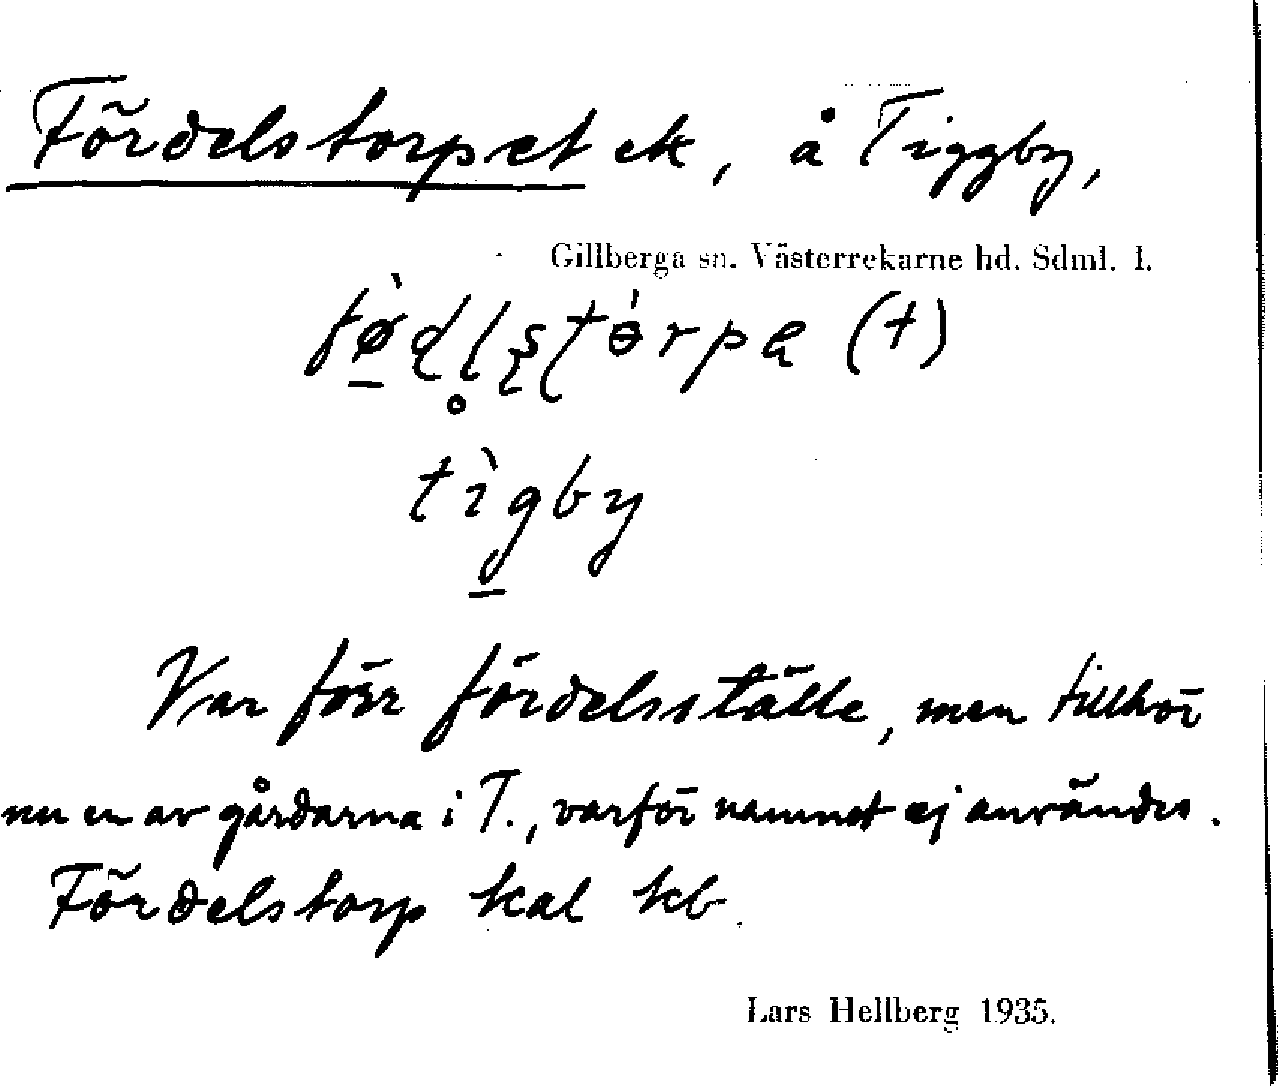 Fördelstorpet ek, å Tiggby,
Gillberga sn. Västerrekarne hd. Sdml. l.
tìgby
Var förr fördelsställe, men tillhör
nu en av gårdarna i T., varför namnet ej användes.
Fördelstorp kal kb.
Lars Hellberg 1935.